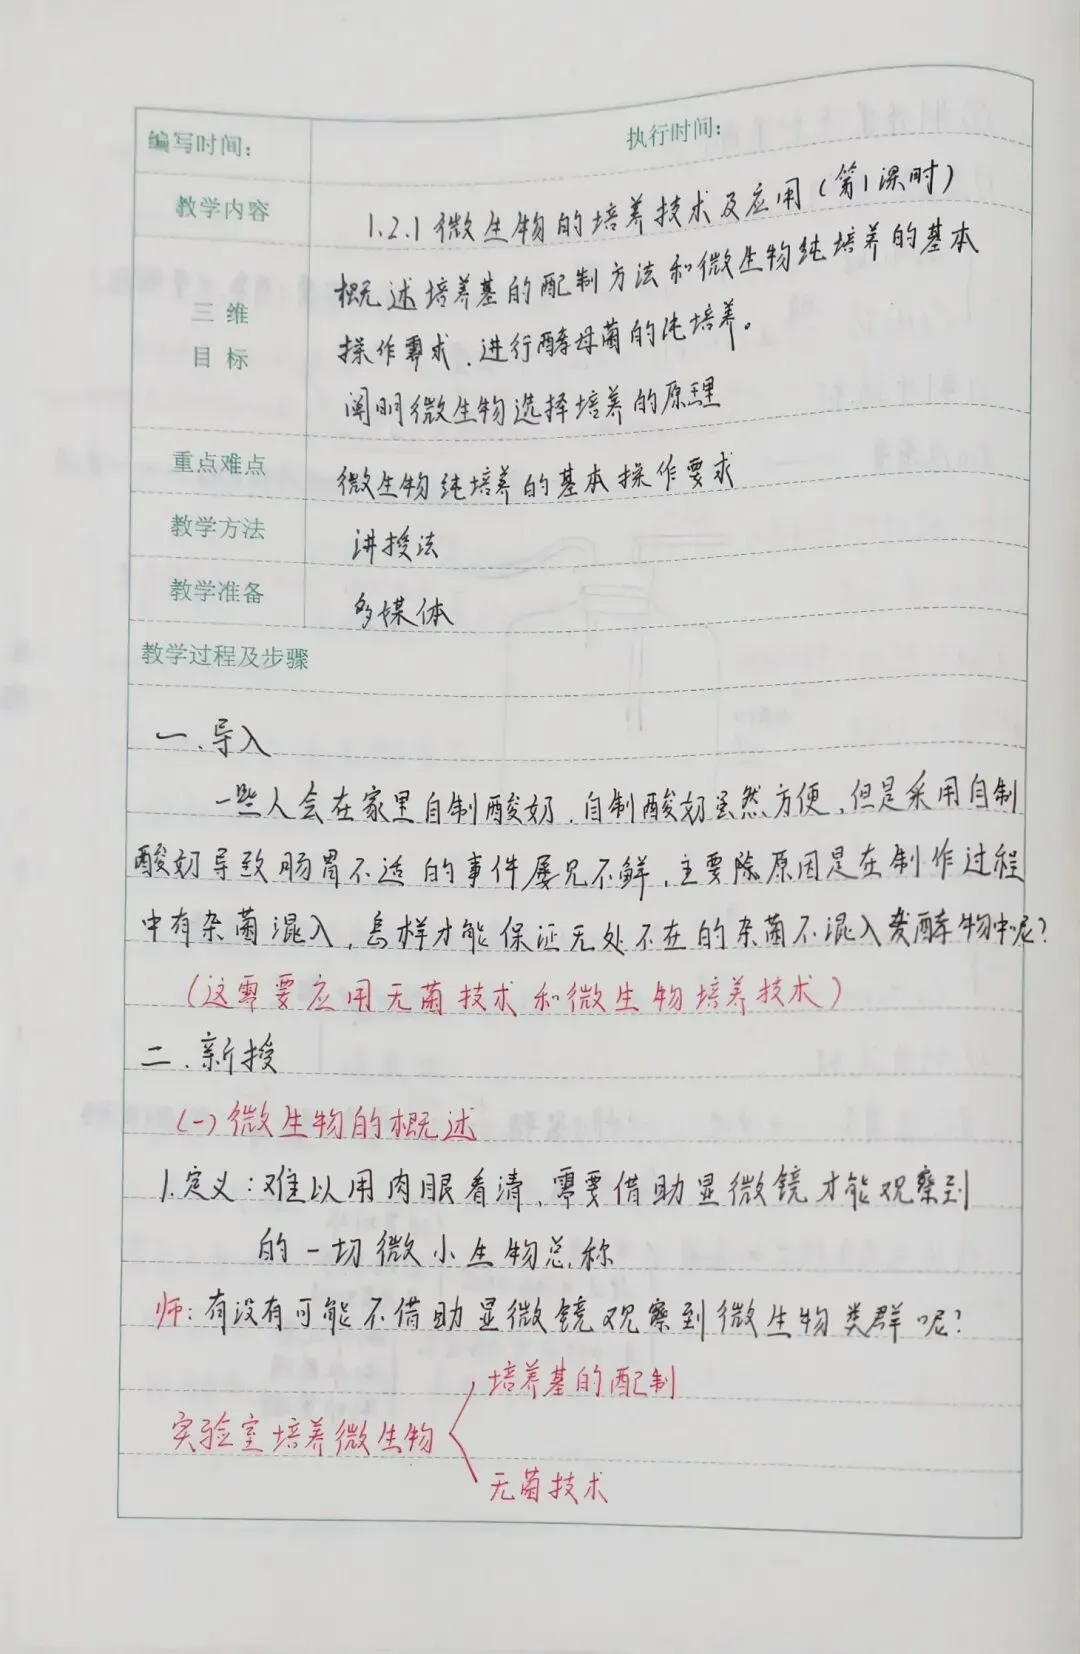 编写时间: 执行时间:
教学内容 1.2.1 微生物的培养技术及应用(第1课时)
三维 概述培养基的配制方法和微生物纯培养的基本
目标 操作要求,进行酵母菌的纯培养。
阐明微生物选择培养的原理
重点难点 微生物纯培养的基本操作要求
教学方法 讲授法
教学准备 多媒体
教学过程及步骤
一.导入
一些人会在家里自制酸奶,自制酸奶虽然方便,但是采用自制
酸奶导致肠胃不适的事件屡见不鲜,主要除原因是在制作过程
中有杂菌混入,怎样才能保证无处不在的杂菌不混入发酵物中呢?
(这需要应用无菌技术和微生物培养技术)
二.新授
(一)微生物的概述
1.定义:难以用肉眼看清,需要借助显微镜才能观察到
的一切微小生物总称
师:有没有可能不借助显微镜观察到微生物类群呢?
培养基的配制
实验室培养微生物
无菌技术